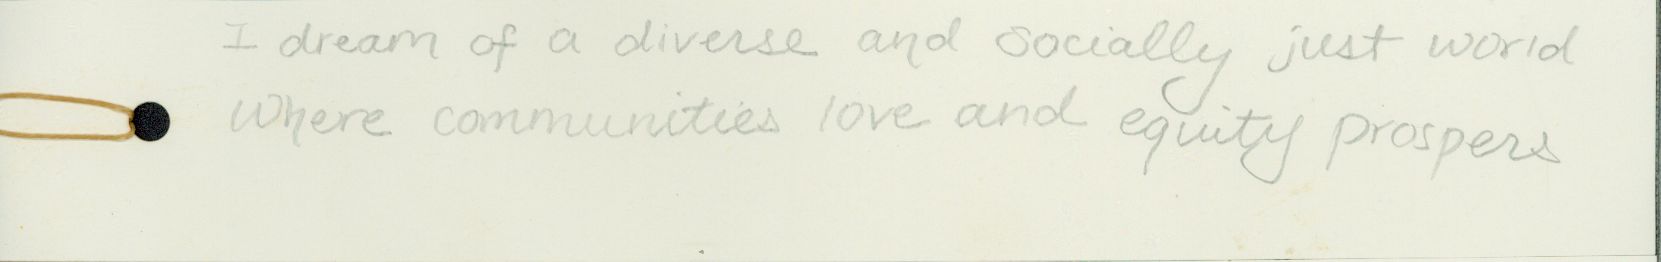 I dream of a diverse and socially just world
Where communities love and equity prospers